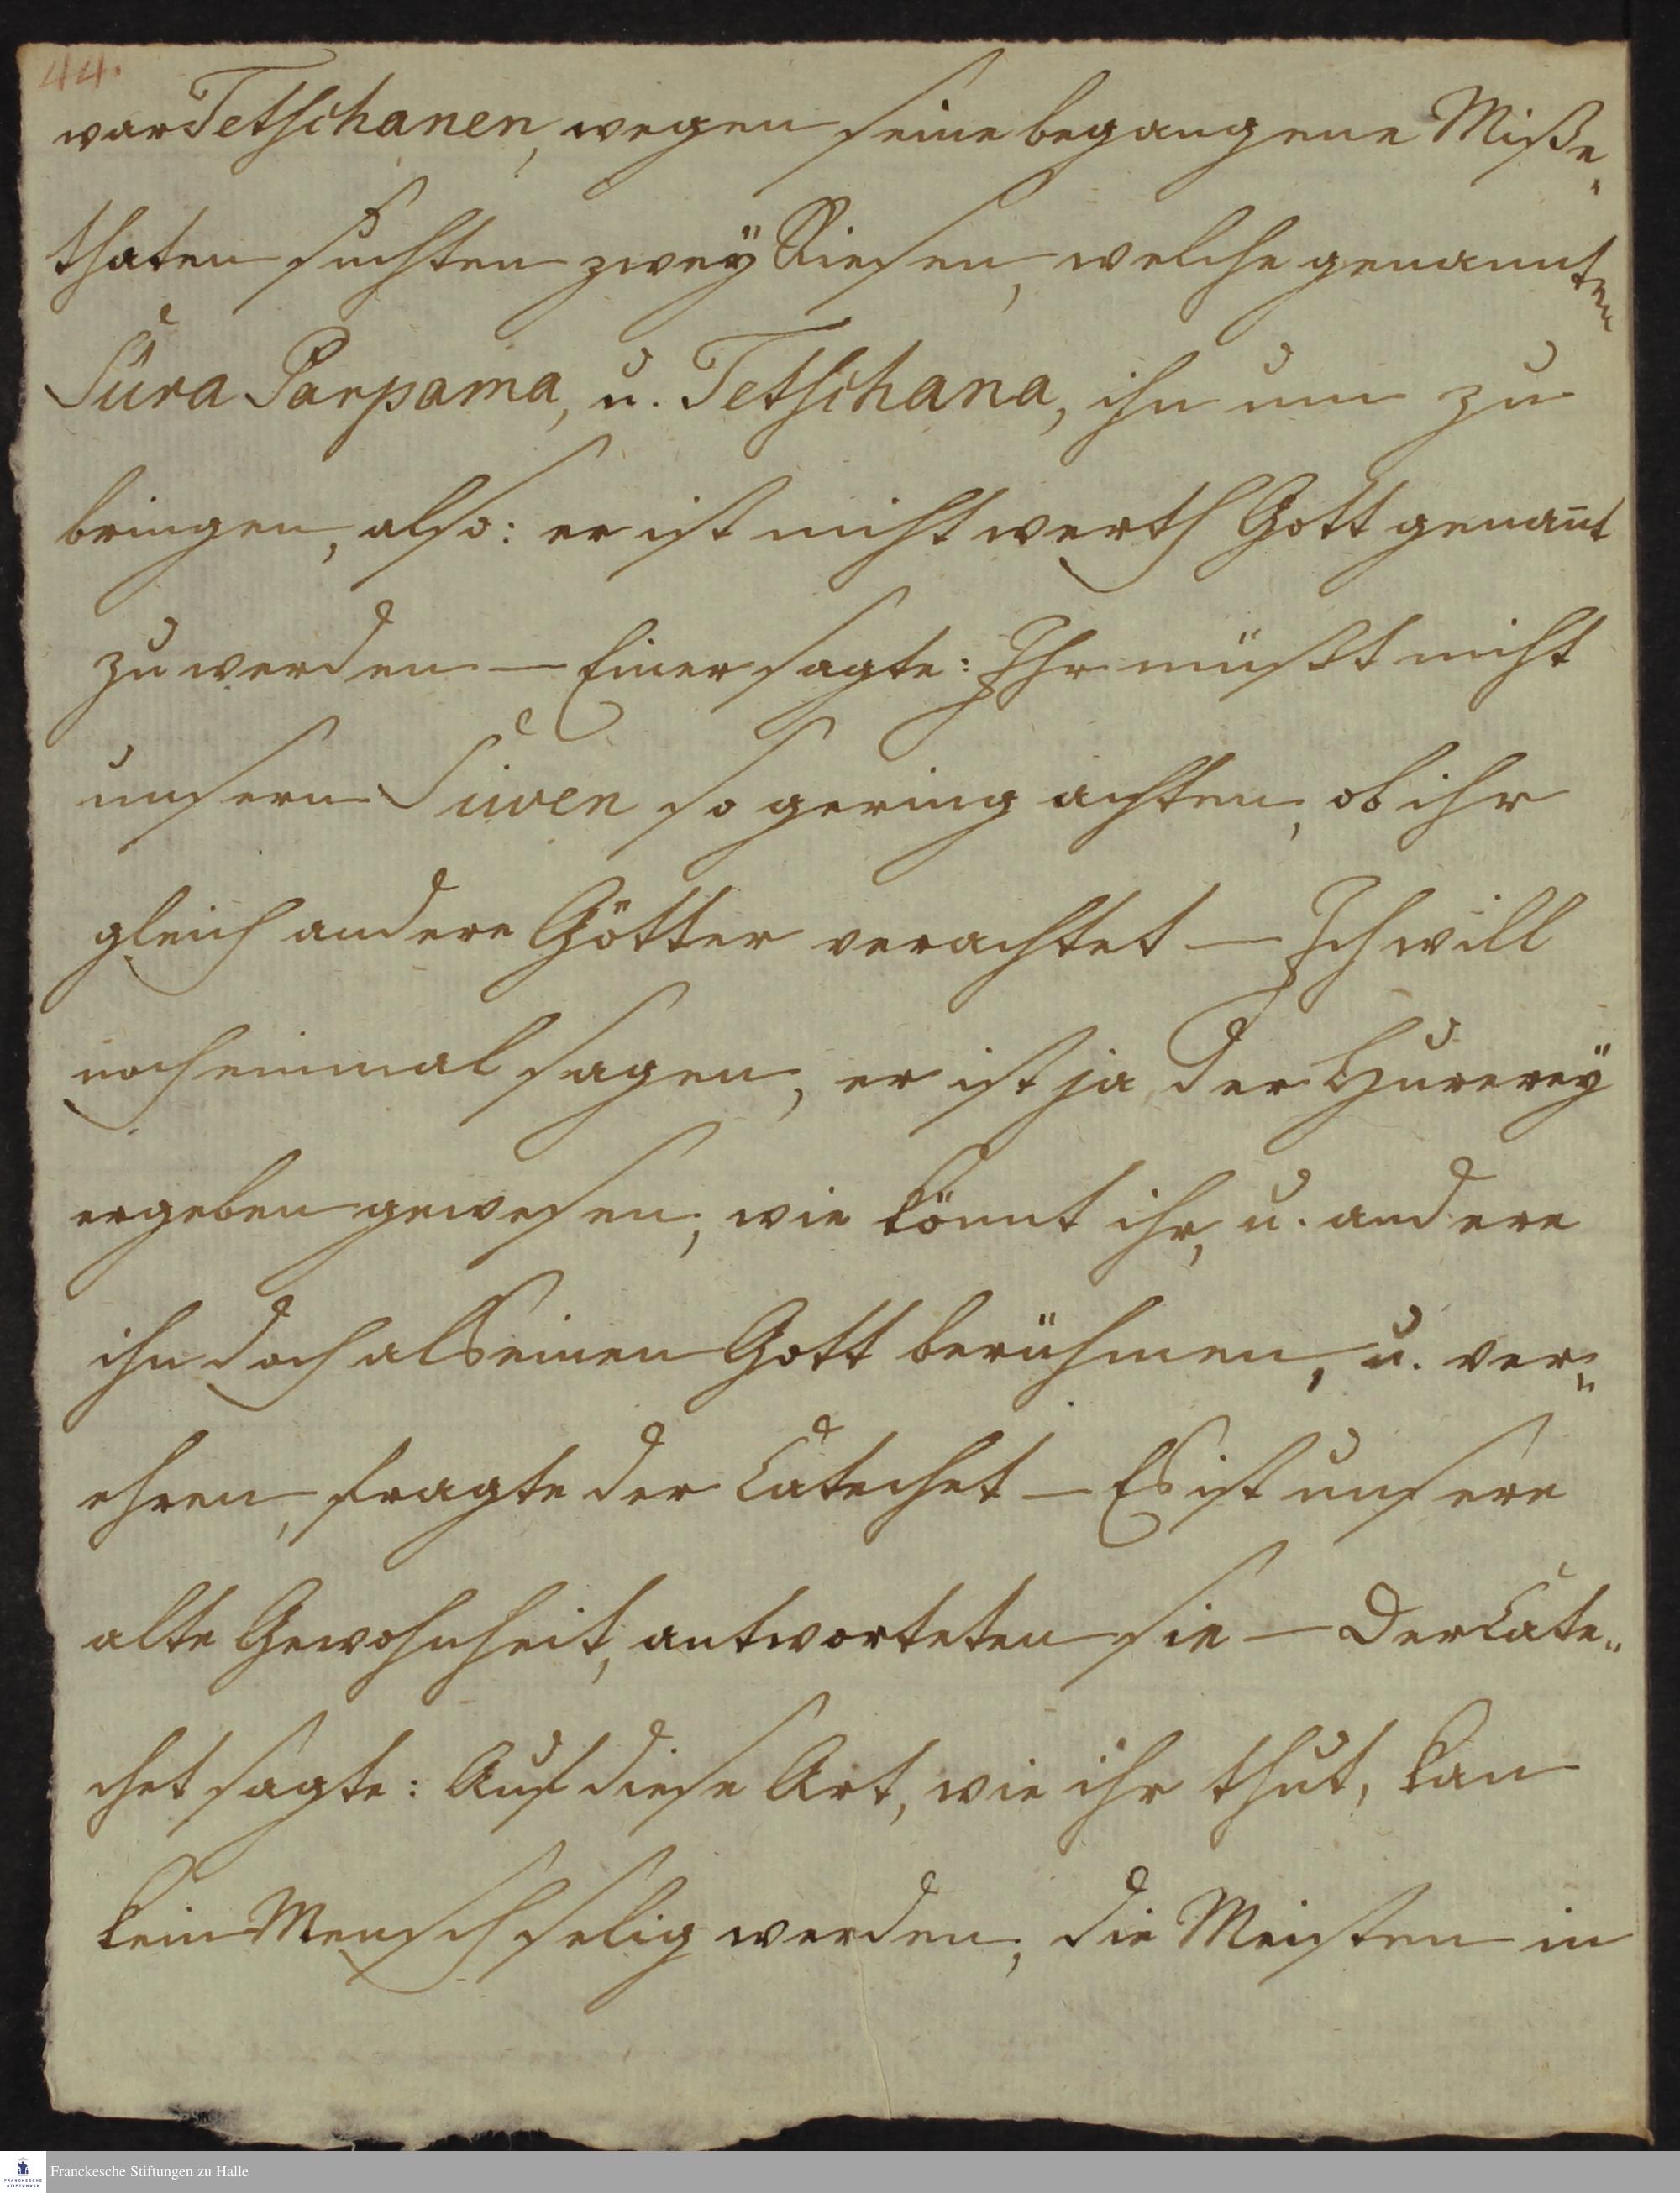 44.
war Tetschanen, wegen seine begangene Miße-
thaten suchten zwey Riesen, welche genannten
Sura Parpama, u. Tetschana, ihn um zu
bringen, also: er ist nicht werth Gott genañt
zu werden — Einer sagte: Ihr müßt nicht
unsern Siwen so gering achten, ob ihr
gleich andere Götter verachtet — Ich will
noch einmal sagen, er ist ja der Hurerey
ergeben gewesen, wie könnt ihr, u. andere
ihn doch als einen Gott berühmen, u. ver-
ehren, fragte der Catechet — Es ist unsere
alte Gewohnheit, antworteten sie — Der Cate-
chet sagte: Auf diese Art, wie ihr thut, kan
kein Mensch selig werden; die Meisten in
Franckesche Stiftungen zu Halle
FRANCKESCHE
STIFTUNGEN